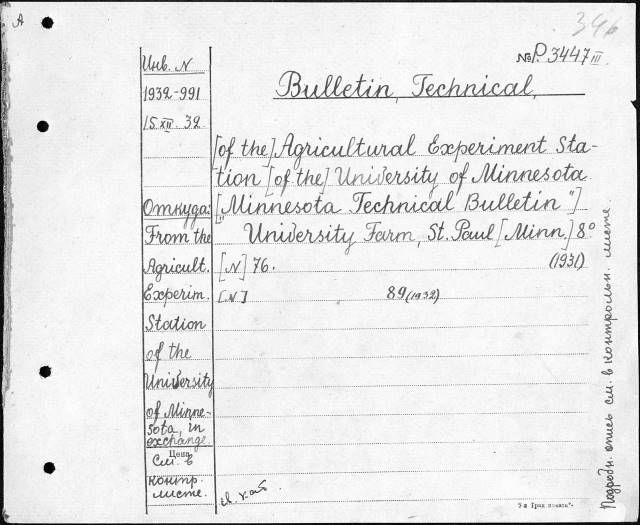 A
346
№ P. 3447 III
Bulletin, Technical,
[of the] Agricultural Experiment Sta-
tion [of the] University of Minnesota.
["Minnesota Technical Bulletin"]
University Farm, St. Paul [Minn.] 8°
[N] 76. (1931)
[N] 89 (1932)
Инв. N
1932-991
15 XII. 32
Откуда:
From the
Agricult.
Experim.
Station
of the
University
of Minne-
sota, in
exchange.
Цена
См. в
контр.
листе.
Подробн. опись см. в контрольн. листе.